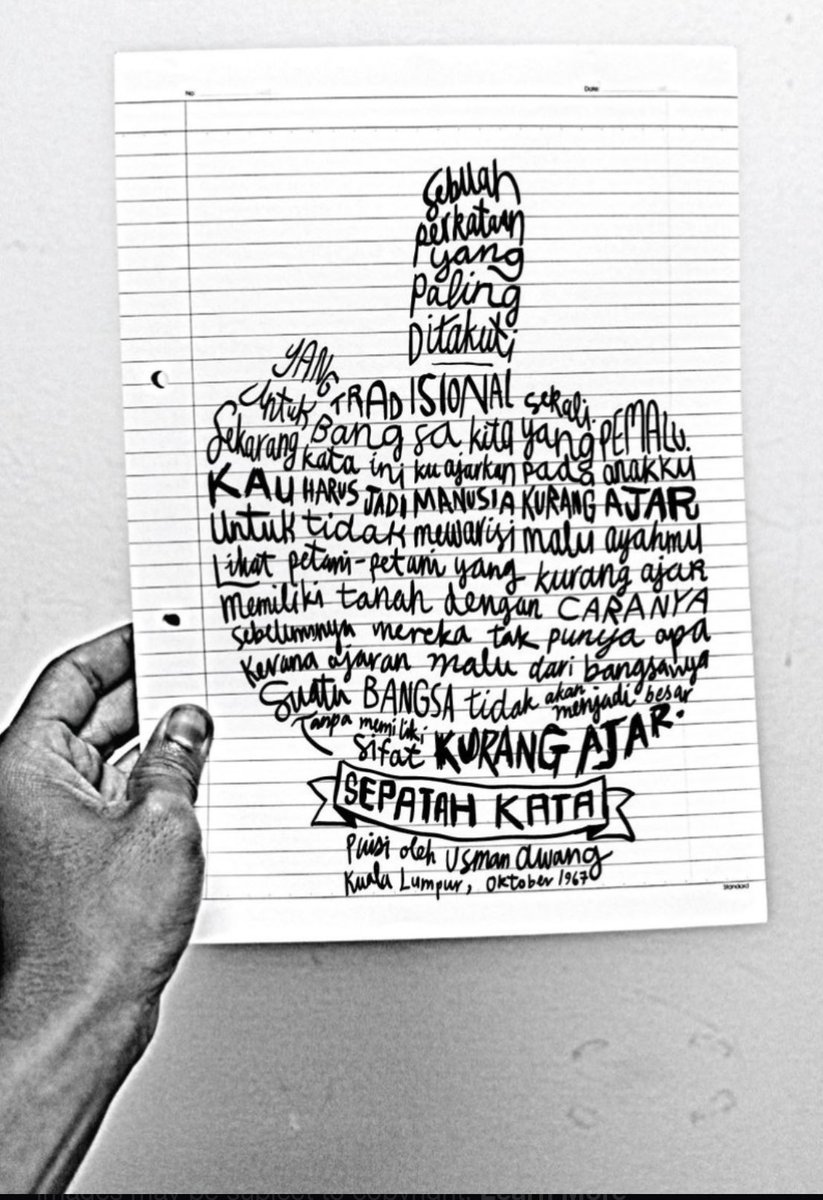 No
Date
Sebuah
perkataan
yang
Paling
Ditakuti
YANG
Untuk TRADISIONAL sekali.
Sekarang Bangsa kita yang PEMALU.
kata ini ku ajarkan pada anakku
KAU HARUS JADI MANUSIA KURANG AJAR
Untuk tidak mewarisi malu ayahmu
Lihat petani-petani yang kurang ajar
Memiliki tanah dengan CARANYA
Sebelumnya mereka tak punya apa
Kerana ajaran malu dari bangsanya
Suatu BANGSA tidak akan menjadi besar
Tanpa memiliki
Sifat KURANG AJAR.
SEPATAH KATA
Puisi oleh Usman Awang
Kuala Lumpur, Oktober 1967
Standard